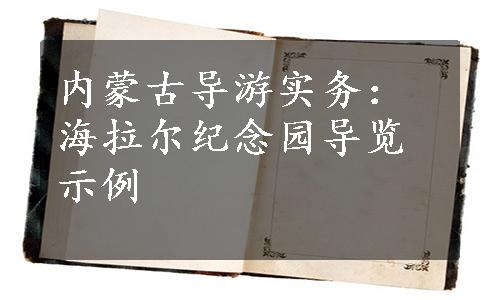 内蒙古导游实务：
海拉尔纪念园导览
示例